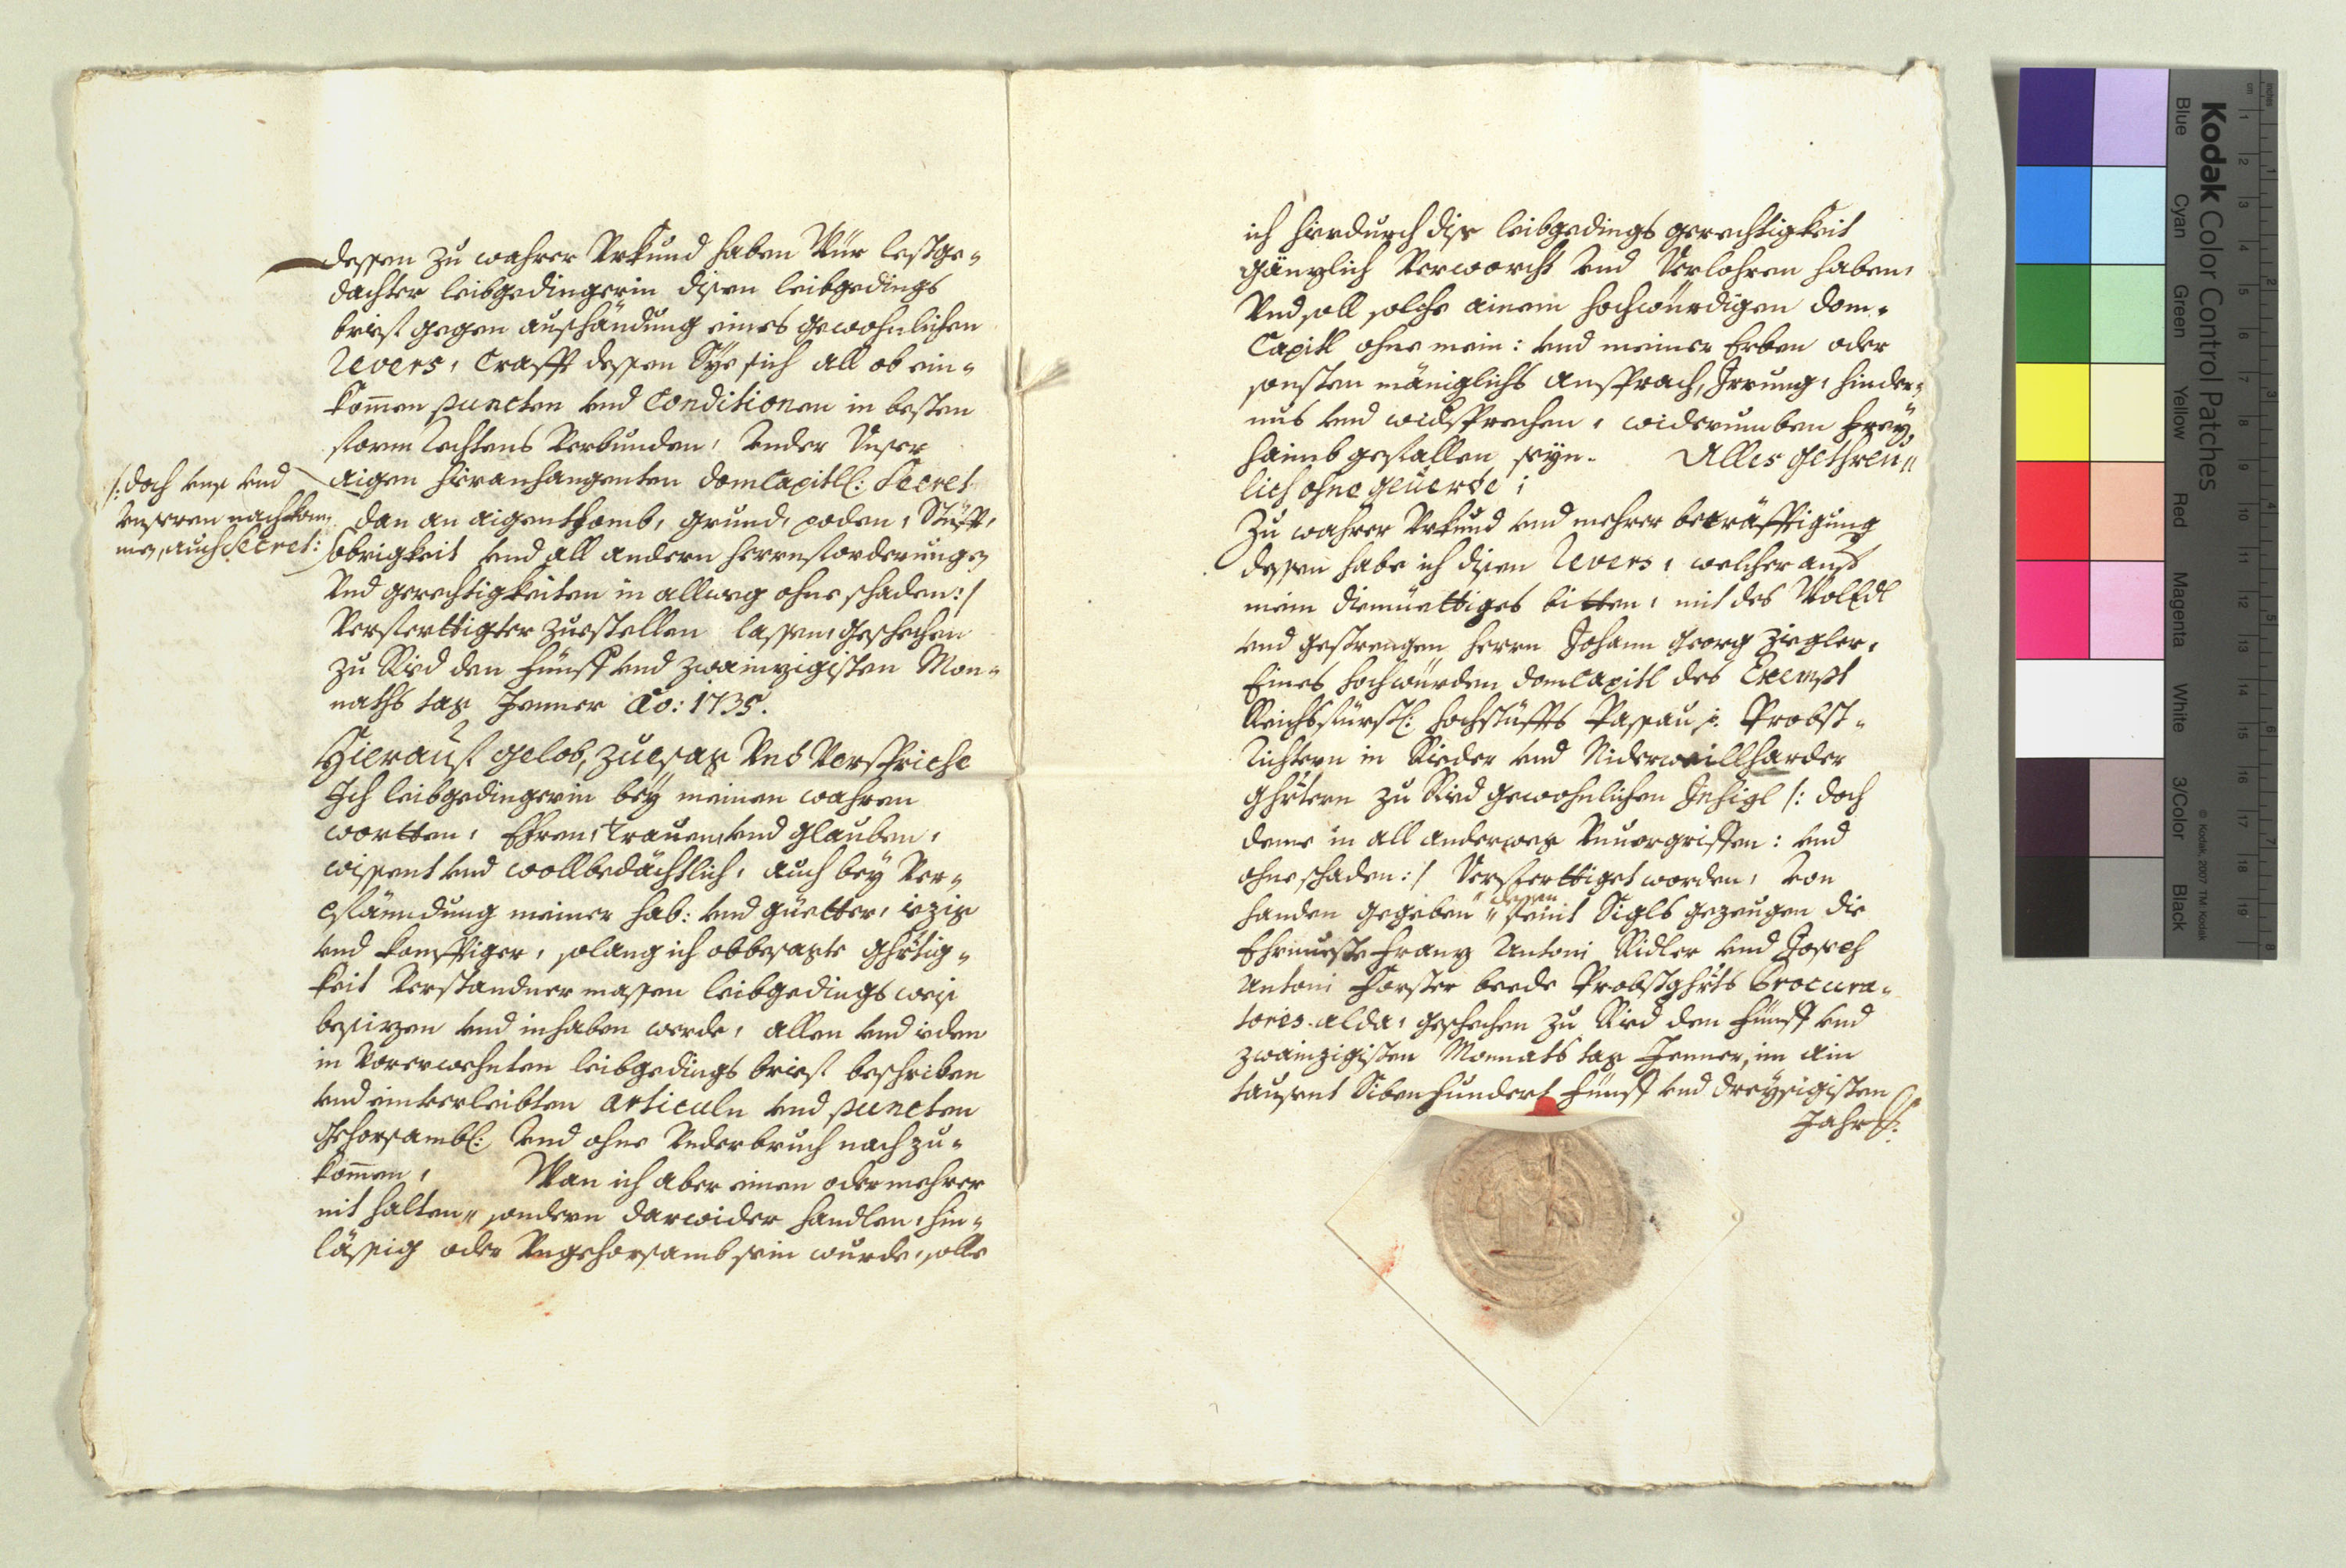 dessen zu wahrer Urkund haben Wür lestge-
dachter leibgedingerin disen leibgedings
brief gegen aushändung eines gewohnlichen
Revers, Crafft dessen Sye sich all ob ein-
kom̄en puncten und Conditionen in besten
form Rechtens Verbunden, Under Unser
/: doch uns und
unseren nachkom-
men, auch Secret:
aigen hieranhangenten domCapitl: Secret
dan an aigenthomb, grund, poden, Stüfft,
Obrigkeit und all andern herrnforderungen
Und gerechtigkeiten in allweg ohne schaden :/
Verferttigter zuestellen lassen, geschechen
zu Rid den fünff und zwainzigisten Mon-
naths tag Jenner Ao: 1735.
Hierauf gelob, zuesag Und Verspriche
Ich leibgedingerin bey meinen wahren
wortten, Ehren, Trauen, und glauben,
wissent und wollbedächtlich, auch bey Ver-
pfändung meiner hab: und güetter, iezig
und konfftiger, solang ich obbesagte ghrtig-
keit Verstandner massen leibgedings weis
besizen und inhaben werde, allen und ieden
in Vorerwehnten leibgedings brief beschriben
und einverleibten Articuln und puncten
gehorsambl: Und ohne Underbruch nachzu-
kom̄en, Wan ich aber einen oder mehrer
nit halten, sondern darwider handlen, hin-
lässig oder Ungehorsamb sein wurde, solle
ich hierdurch dise leibgedings gerechtigkeit
gänzlich Verworcht und Verlohren haben,
Und soll solche ainem hochwürdigen Dom-
Capitl ohne mein: und meiner Erben oder
sonsten mäniglichs ansprach, Irrung, hinder-
nus und widsprechen, widerumben frey
haimbgefallen seyn. Alles gethreu-
lich ohne geuerde;
Zu wahrer Urkund und mehrer becräfftigung
dessen habe ich disen Revers, welcher auf
mein diemüettiges bitten, mit des WolEdl
und gestrengen herrn Johann Georg Ziegler,
Eines hochwürden domCapitl des Exempt
Reichsfürstl: hochstüffts Passau p: Probst-
Richtern in Rieder und Niderweillharder
ghrtern zu Rid gewohnlichen Insigl /: doch
deme in all anderweg Unuorgriffen: und
ohne schaden :/ Verferttiget worden, Von
handen gegeben dessen seint Sigls gezeugen die
Ehrnueste Franz Antoni Ridler und Joseph
Antoni Forster beede Probstghrts Procura-
tores alda, geschechen zu Rid den fünff und
zwainzigisten Monnats tag Jenner, im Ain
tausent Sibenhundert fünff und dreyssigisten
Jahr
Kodak Color Control Patches
Blue Cyan Green Yellow Red Magenta White 3/Color Black
© Kodak, 2007 TM: Kodak
cm 1 2 3 4 5 6 7 8 9 10 11 12 13 14 15 16 17 18 19
inches 1 2 3 4 5 6 7 8